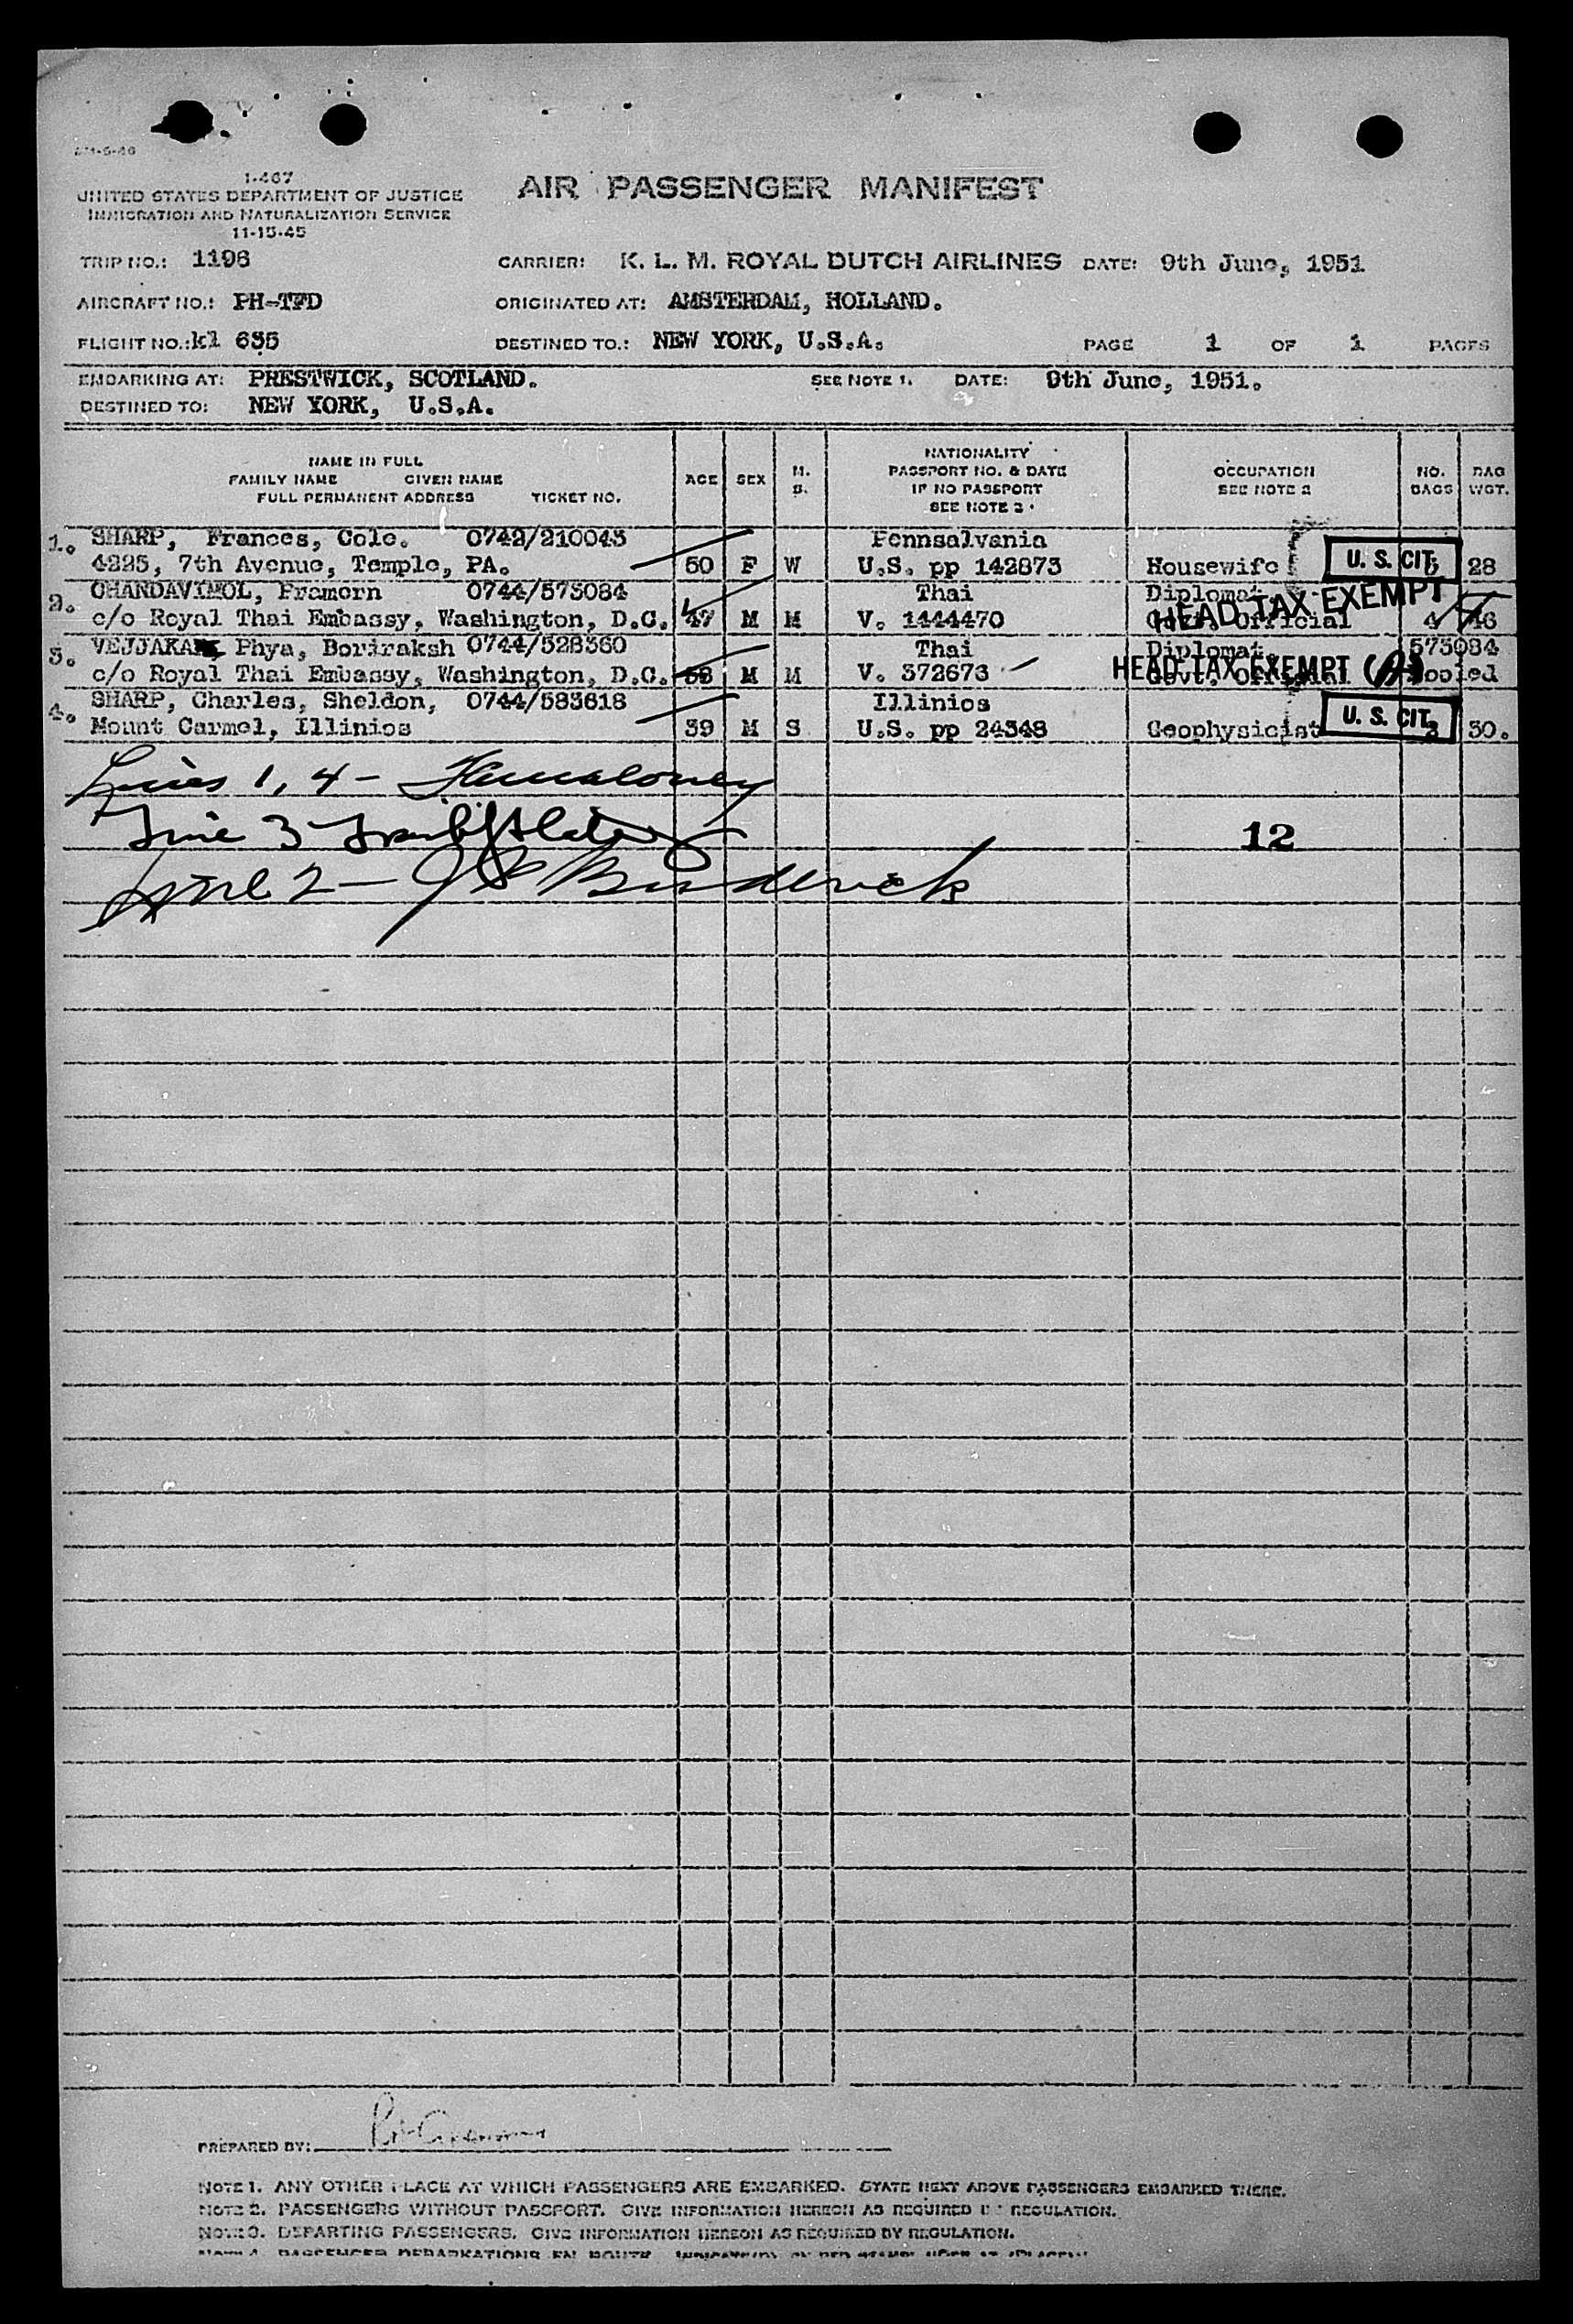 1-467
UNITED STATES DEPARTMENT OF JUSTICE
IMMIGRATION AND NATURALIZATION SERVICE
11-15-45
AIR PASSENGER MANIFEST
TRIP NO.: 1196 CARRIER: K. L. M. ROYAL DUTCH AIRLINES DATE: 9th June, 1951
AIRCRAFT NO.: PH-TFD ORIGINATED AT: AMSTERDAM, HOLLAND.
FLIGHT NO.: kl 635 DESTINED TO.: NEW YORK, U.S.A. PAGE 1 OF 1 PAGES
EMBARKING AT: PRESTWICK, SCOTLAND. SEE NOTE 1. DATE: 9th June, 1951.
DESTINED TO: NEW YORK, U.S.A.
NAME IN FULL
FAMILY NAME GIVEN NAME
FULL PERMANENT ADDRESS TICKET NO.
AGE
SEX
M.
S.
NATIONALITY
PASSPORT NO. & DATE
IF NO PASSPORT
SEE NOTE 2
OCCUPATION
SEE NOTE 2
NO.
BAGS
BAG
WGT.
1. SHARP, Frances, Cole. 0742/210043 Pennsalvania
4225, 7th Avenue, Temple, PA. 50 F W U.S. pp 142873 Housewife U. S. CIT. 28
2. CHANDAVIMOL, Pramorn 0744/573084 Thai Diplomat.
c/o Royal Thai Embassy, Washington, D.C. 47 M M V. 1444470 Official 4 46
HEAD TAX EXEMPT
3. Phya, Boriraksh 0744/528360 Thai Diplomat. 573084
c/o Royal Thai Embassy, Washington, D.C. 58 M M V. 372673 Govt. Official Pooled
HEAD TAX EXEMPT
4. SHARP, Charles, Sheldon, 0744/583618 Illinios
Mount Carmel, Illinios 39 M S U.S. pp 24348 Geophysicist U. S. CIT. 30.
Lines 1, 4 –
Line 3
12
Line 2 –
PREPARED BY:
NOTE 1. ANY OTHER PLACE AT WHICH PASSENGERS ARE EMBARKED. STATE NEXT ABOVE PASSENGERS EMBARKED THERE.
NOTE 2. PASSENGERS WITHOUT PASSPORT. GIVE INFORMATION HEREON AS REQUIRED BY REGULATION.
NOTE 3. DEPARTING PASSENGERS. GIVE INFORMATION HEREON AS REQUIRED BY REGULATION.